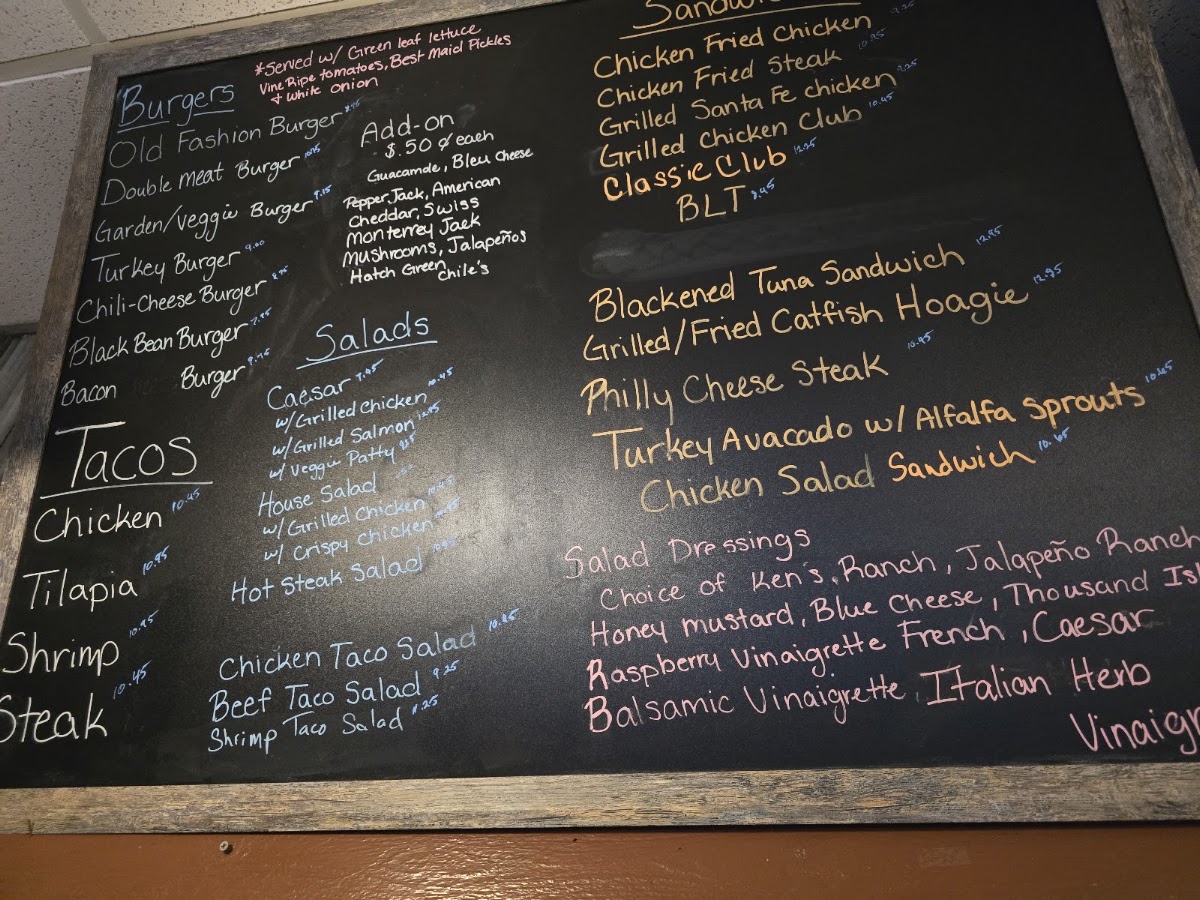 *Served w/ Green leaf lettuce
Vine Ripe tomatoes, Best Maid Pickles
+ White onion
Burgers
Old Fashion Burger
Double meat Burger
Garden/Veggie Burger
Turkey Burger 9.00
Chili-Cheese Burger
Black Bean Burger
Bacon Burger
Add-on
$.50 ¢ each
Guacamole, Bleu Cheese
Pepper Jack, American
Cheddar, Swiss
Monterrey Jack
Mushrooms, Jalapeños
Hatch Green Chile's
Tacos
Chicken 10.45
Tilapia 10.95
Shrimp 10.95
Steak 10.45
Salads
Caesar
w/ Grilled Chicken 10.45
w/ Grilled Salmon
w/ Veggie Patty
House Salad
w/ Grilled Chicken
w/ Crispy Chicken
Hot Steak Salad
Chicken Taco Salad
Beef Taco Salad 9.25
Shrimp Taco Salad
Chicken Fried Chicken
Chicken Fried Steak
Grilled Santa Fe chicken
Grilled Chicken Club 10.45
Classic Club
BLT
Blackened Tuna Sandwich 12.95
Grilled/Fried Catfish Hoagie 12.95
Philly Cheese Steak 10.95
Turkey Avacado w/ Alfalfa Sprouts 10.45
Chicken Salad Sandwich 10.45
Salad Dressings
Choice of Ken's, Ranch, Jalapeño Ranch
Honey mustard, Blue Cheese, Thousand Isl
Raspberry Vinaigrette French, Caesar
Balsamic Vinaigrette, Italian Herb
Vinaigr